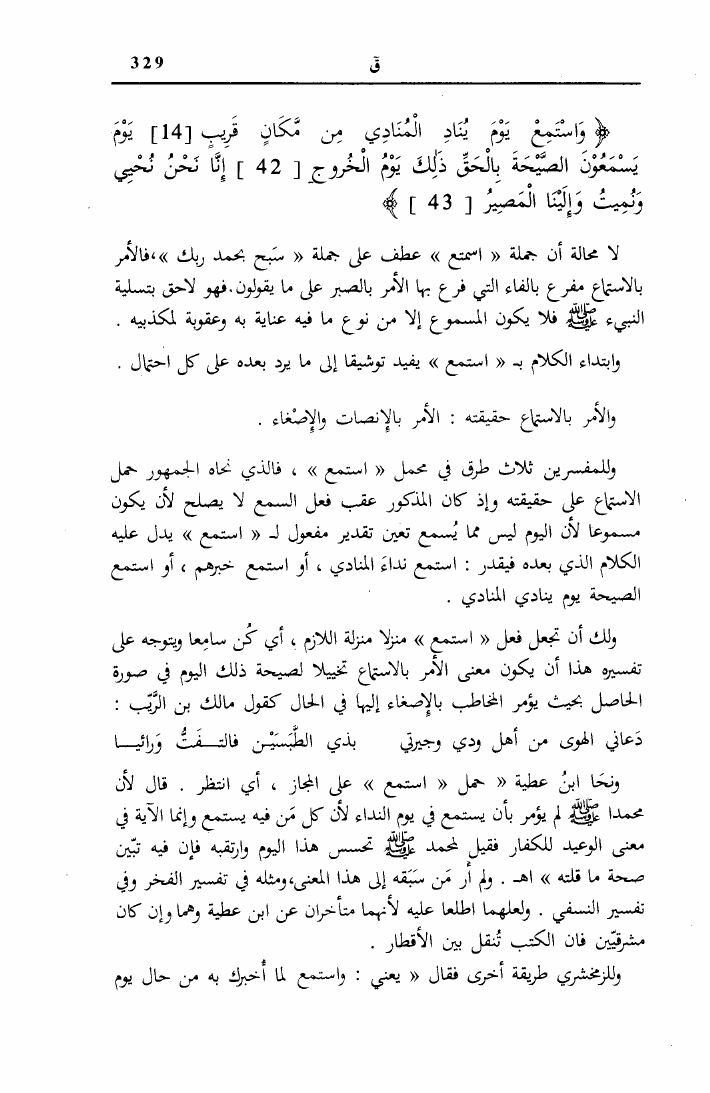 329
قۤ
﴿ وَاسْتَمِعْ يَوْمَ يُنَادِ الْمُنَادِي مِن مَّكَانٍ قَرِيبٍ [14] يَوْمَ
يَسْمَعُوْنَ الصَّيْحَةَ بِالْحَقِّ ذَٰلِكَ يَوْمُ الْخُروجِ [ 42 ] إِنَّا نَحْنُ نُحْيِي
وَنُمِيتُ وَإِلَيْنَا الْمَصِيرُ [ 43 ] ﴾
لا محالة أن جملة « استمع » عطف على جملة « سَبح بحمد ربك »،فالأمر
بالاستماع مفرع بالفاء التي فرع بها الأمر بالصبر على ما يقولون.فهو لاحق بتسلية
النبيء ﷺ فلا يكون المسموع إلا من نوع ما فيه عناية به وعقوبة لمكذبيه .
وابتداء الكلام بـ « استمع » يفيد توشيقا إلى ما يرد بعده على كل احتمال .
والأمر بالاستماع حقيقته : الأمر بالإنصات والإصْغاء .
وللمفسرين ثلاث طرق في محمل « استمع » ، فالذي نحاه الجمهور حمل
الاستماع على حقيقته وإذ كان المذكور عقب فعل السمع لا يصلح لأن يكون
مسموعا لأن اليوم ليس مما يُسمع تعين تقدير مفعول لـ « استمع » يدل عليه
الكلام الذي بعده فيقدر : استمع نداءَ المنادي ، أو استمع خبرهم ، أو استمع
الصيحة يوم ينادي المنادي .
ولك أن تجعل فعل « استمع » منزلا منزلة اللازم ، أي كُن سامِعا ويتوجه على
تفسيره هذا أن يكون معنى الأمر بالاستماع تخييلا لصيحة ذلك اليوم في صورة
الحاصل بحيث يؤمر المخاطب بالإصغاء إليها في الحال كقول مالك بن الرَّيّب :
دَعاني الهوى من أهل ودي وجيرتي بذي الطَّبَسَيْـن فالتـــفَتُّ وَرائيـــا
ونحَا ابنُ عطية « حمل « استمع » على المجاز ، أي انتظر . قال لأن
محمدا ﷺ لم يؤمر بأن يستمع في يوم النداء لأن كل مَن فيه يستمع وإنما الآية في
معنى الوعيد للكفار فقيل لمحمد ﷺ تحسس هذا اليوم وارتقبه فإن فيه تبّين
صحة ما قلته » اهـ . ولم أر مَن سَبَقه إلى هذا المعنى،ومثله في تفسير الفخر وفي
تفسير النسفي . ولعلهما اطلعا عليه لأنهما متأخران عن ابن عطية وهما وإن كان
مشرقيّين فان الكتب تُنقل بين الأقطار .
وللزمخشري طريقة أخرى فقال « يعني : واستمع لما أُخبرك به من حال يوم